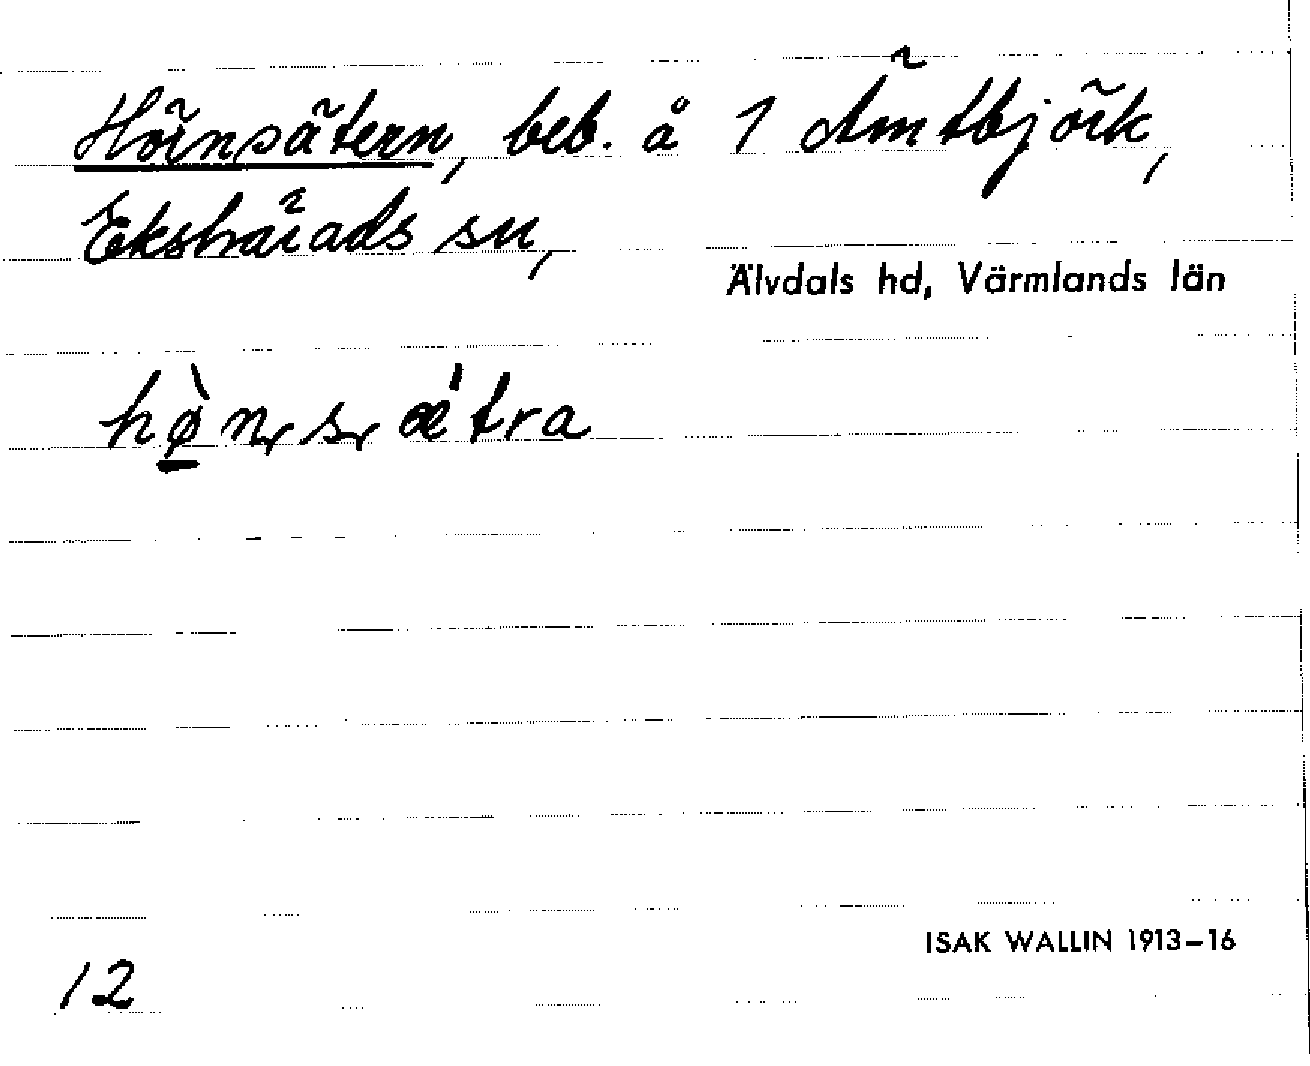 Hörnsätern, beb. å 1 Åmtbjörk,
Ekshärads sn,
Älvdals hd, Värmlands län
hø̀n, s, æ'tra
ISAK WALLIN 1913-16
12